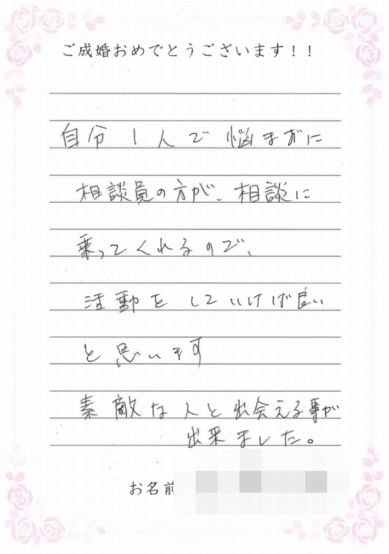 ご成婚おめでとうございます！！
自分1人で悩まずに
相談員の方が、相談に
乗ってくれるので、
活動をしていけば良い
と思います
素敵な人と出会える事が
出来ました。
お名前